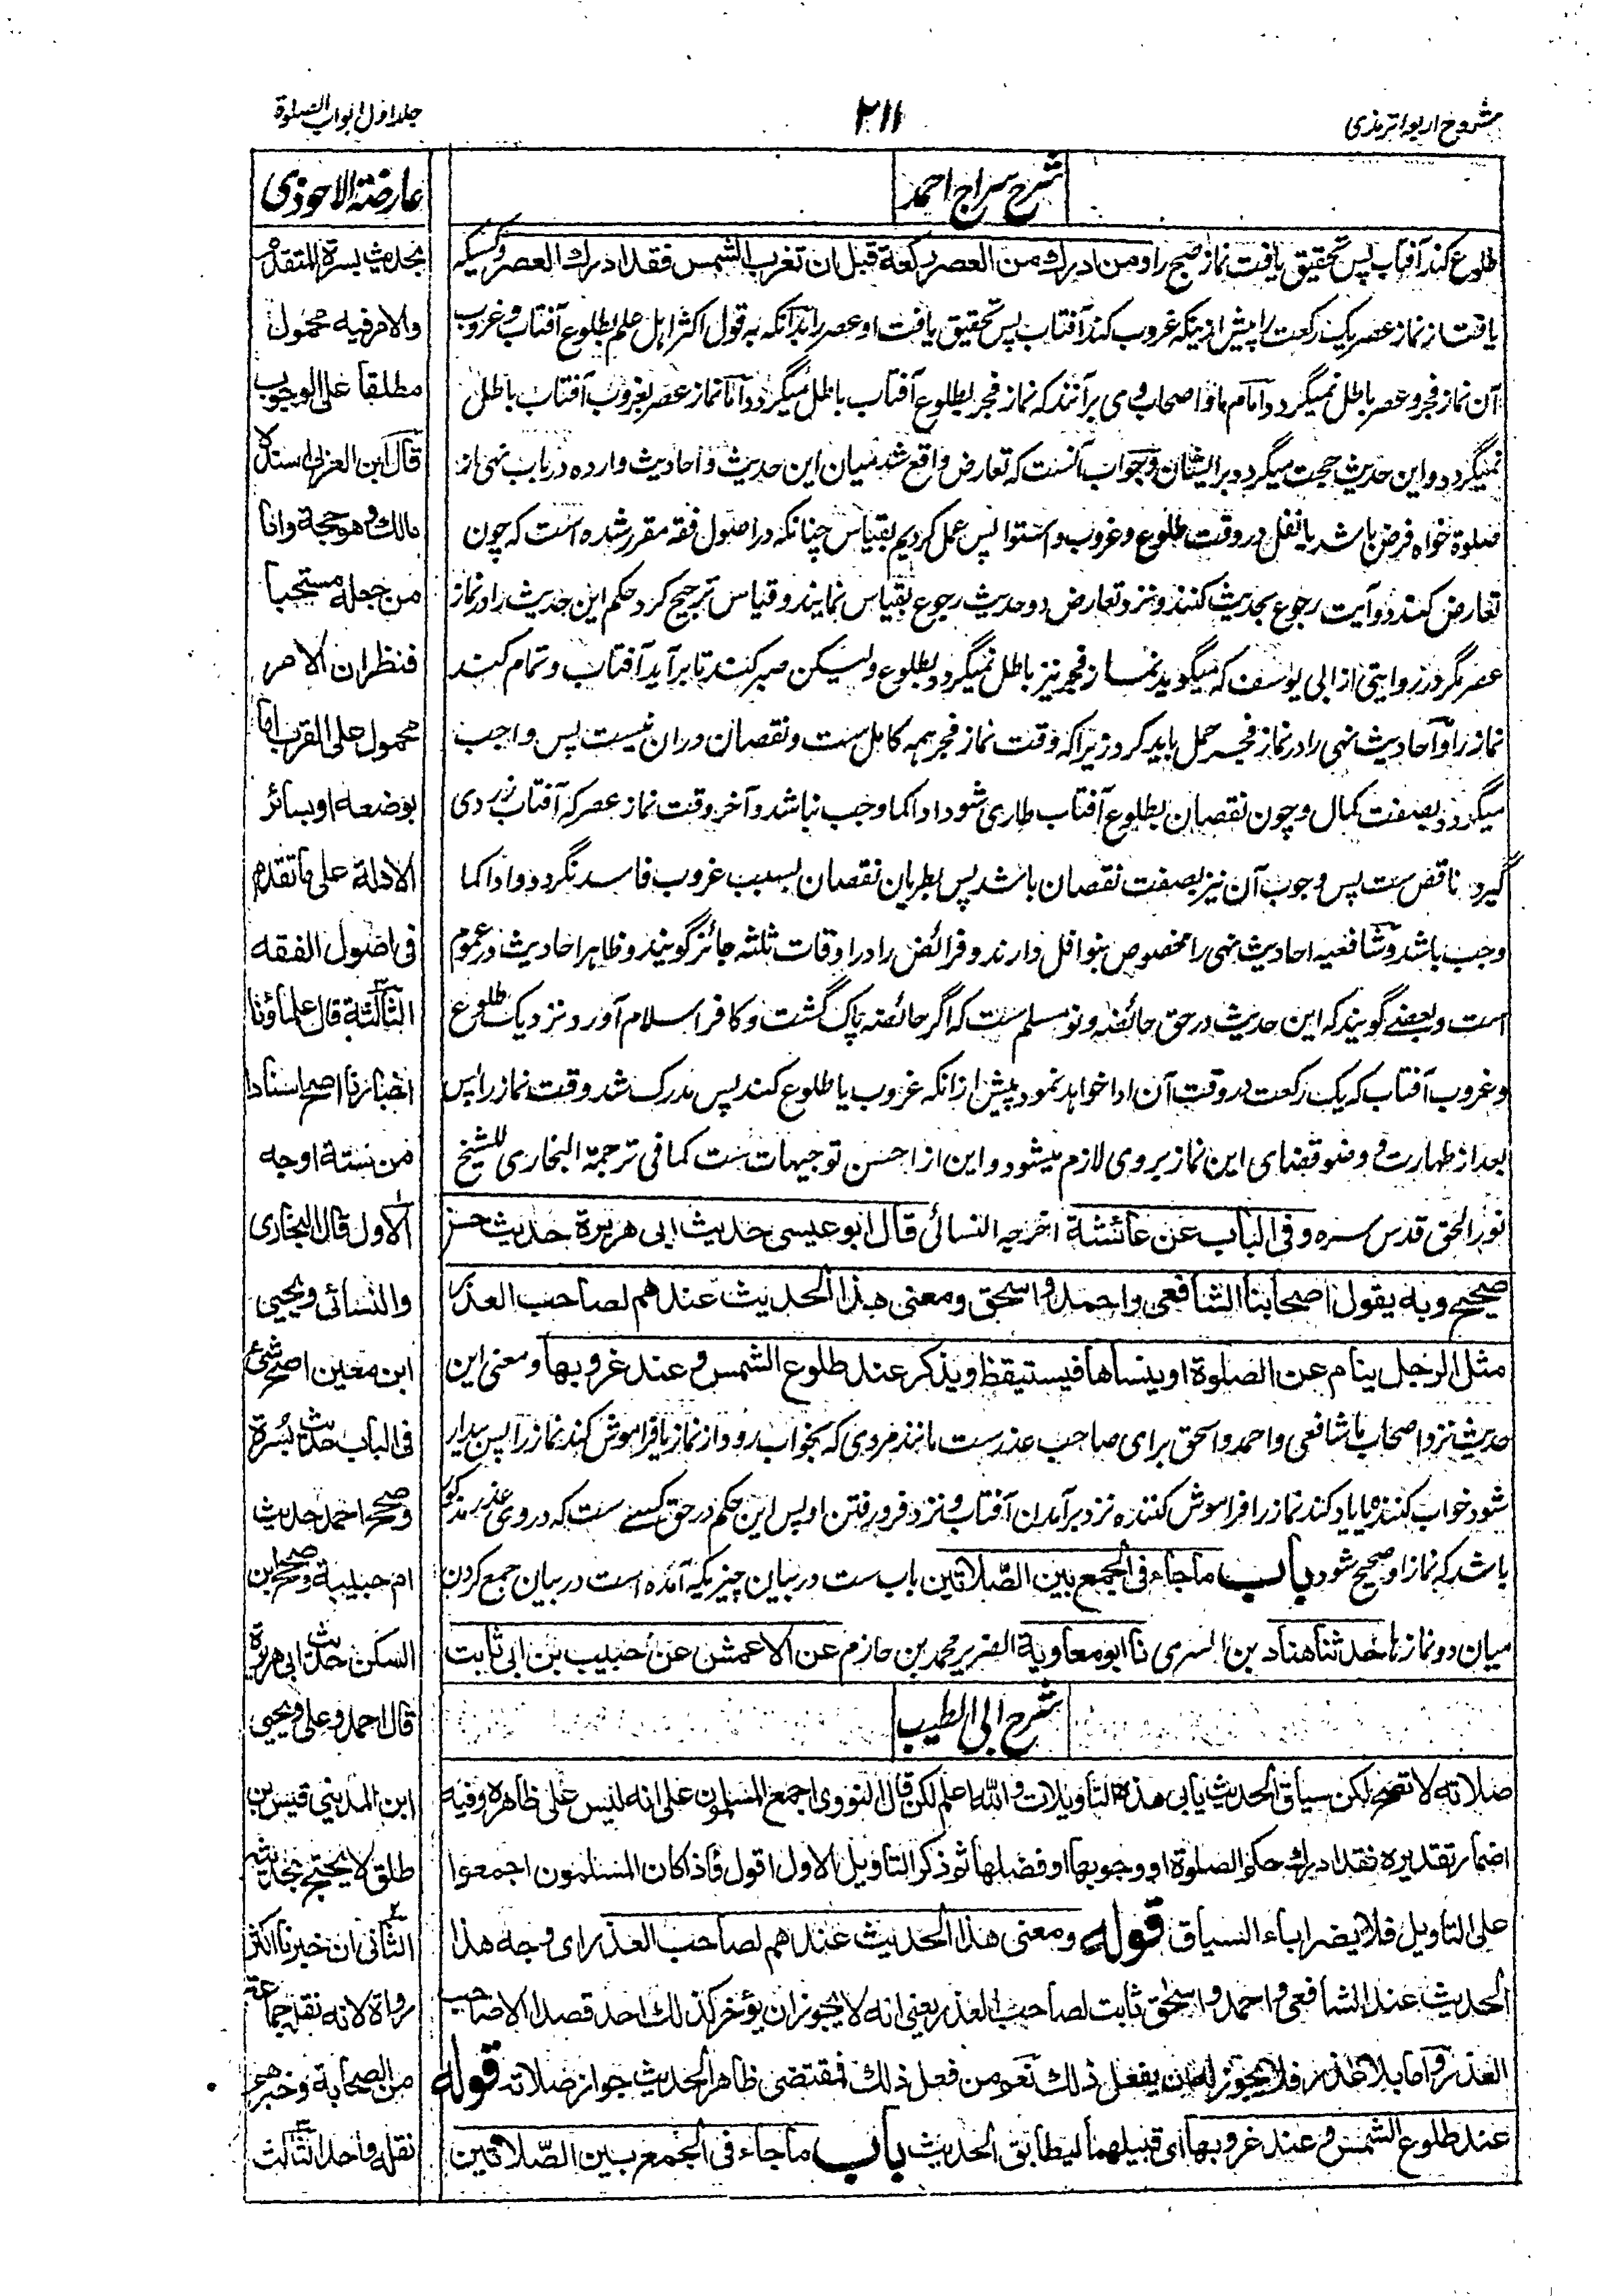 مشروح اربعه ترمذی
۲۱۱
جلد اول ابواب الصلوة
شرح سراج احمد
طلوع کند آفتاب پس تحقیق یافت نماز صبح را ومن ادرك من العصر ركعة قبل ان تغرب الشمس فقد ادرك العصر و کسیکه
یافت از نماز عصر یک رکعت را پیش ازینکه غروب کند آفتاب پس تحقیق یافت او عصر را بدانکه به قول اکثر اہل علم بطلوع آفتاب و غروب
آن نماز فجر و عصر باطل نمیگردد و اما امام ما و اصحاب وی برآنند که نماز فجر بطلوع آفتاب باطل میگردد و اما نماز عصر بغروب آفتاب باطل
نمیگردد و این حدیث حجت میگردد بر ایشان و جواب آنست که تعارض واقع شد میان این حدیث و احادیث وارده در باب نہی از
صلوة خواه فرض باشد یا نفل در وقت طلوع و غروب و استوا پس عمل کردیم بقیاس چنانکه در اصول فقه مقرر شده است که چون
تعارض کنند دو آیت رجوع بحدیث کنند و نزد تعارض دو حدیث رجوع بقیاس نمایند و قیاس ترجیح کرد حکم این حدیث را در نماز
عصر مگر در روایتی از ابی یوسف که میگوید نماز فجر نیز باطل نمیگردد بطلوع ولیکن صبر کند تا برآید آفتاب و تمام کند
نماز را و احادیث نہی را در نماز فجر حمل باید کرد زیرا که وقت نماز فجر ہمه کامل ست و نقصان دران نیست پس واجب
میگردد بصفت کمال و چون نقصان بطلوع آفتاب طاری شود ادا کما وجب نباشد و آخر وقت نماز عصر که آفتاب زردی
گیرد ناقص ست پس وجوب آن نیز بصفت نقصان باشد پس بطریان نقصان بسبب غروب فاسد نگردد و ادا کما
وجب باشد و شافعیه احادیث نہی را مخصوص بنوافل دارند و فرائض را در اوقات ثلثه جائز گویند و ظاہر احادیث در عموم
است و بعضے گویند که این حدیث در حق حائضه و نو مسلم ست که اگر حائضه پاک گشت و کافر اسلام آورد نزدیک طلوع
و غروب آفتاب که یک رکعت در وقت آن ادا خواہد نمود پیش ازانکه غروب یا طلوع کند پس مدرک شد وقت نماز را پس
بعد از طہارت و وضو قضای این نماز بر وی لازم میشود و این از احسن توجیہات ست کما فی ترجمة البخاری للشیخ
نور الحق قدس سره وفى الباب عن عائشة اخرجه النسائی قال ابو عيسى حديث ابى هريرة حديث حسن
صحيح وبه يقول اصحابنا الشافعى واحمد واسحق ومعنى هذا الحديث عندهم لصاحب العذر
مثل الرجل ينام عن الصلوة او ينساها فيستيقظ ويذكر عند طلوع الشمس و عند غروبها و معنی این
حدیث نزد اصحاب ما شافعی و احمد و اسحق برای صاحب عذر ست مانند مردی که بخواب رود از نماز یا فراموش کند نماز را پس بیدار
شود خواب کننده یا یاد کند نماز را فراموش کننده نزد برآمدن آفتاب و نزد فرو رفتن او پس این حکم در حق کسے ست که در وی عذر مذکور
باشد که نماز او صحیح شود باب ماجاء فى الجمع بين الصلاتين باب ست در بیان چیزیکه آمده است در بیان جمع کردن
میان دو نماز نا حدثنا هناد بن السرى نا ابو معاوية الضرير محمد بن حازم عن الاعمش عن حبيب بن ابى ثابت
شرح ابی الطیب
صلاته لا تصح لكن سياق الحديث يابى هذه التاويلات والله اعلم لكن قال النووى اجمع المسلمون على انه ليس على ظاهره وفيه
اضمار تقديره فقد ادرك حكم الصلوة او وجوبها او فضلها ثم ذكر التاويل الاول اقول فاذا كان المسلمون اجمعوا
على التاويل فلا يضر اباء السياق قوله ومعنى هذا الحديث عندهم لصاحب العذر اى وجه هذا
الحديث عند الشافعى واحمد واسحق ثابت لصاحب العذر يعنى انه لا يجوز ان يؤخر كذلك احد قصدا الا صاحب
العذر واما بلا عذر فلا يجوز له ان يفعل ذلك نعم من فعل ذلك فمقتضى ظاهر الحديث جواز صلاته قوله
عند طلوع الشمس و عند غروبها اى قبيلهما ليطابق الحديث باب ماجاء فى الجمع بين الصلاتين
عارضة الاحوذى
بحديث بسرة المتقدم
والامر فيه محمول
مطلقا على الوجوب
قال ابن العربى اسند
مالك وهو حجة وانا
من جعله مستحبا
فنظر ان الامر
محمول على القرب اما
بوضعه او بسائر
الادلة على ما تقدم
فى اصول الفقه
الثالثة قال علماؤنا
اخبارنا اصح اسنادا
من ستة اوجه
الاول قال البخارى
والنسائى ويحيى
ابن معين اصح شئ
فى الباب حديث بسرة
وصحح احمد حديث
ام حبيبة وصحح ابن
السكن حديث ابى هريرة
قال احمد وعلى ويحيى
ابن المدينى قيس بن
طلق لا يحتج بحديثه
الثانى ان خبرنا اكثر
رواة لانه نقله جماعة
من الصحابة وخبرهم
نقله واحد الثالث